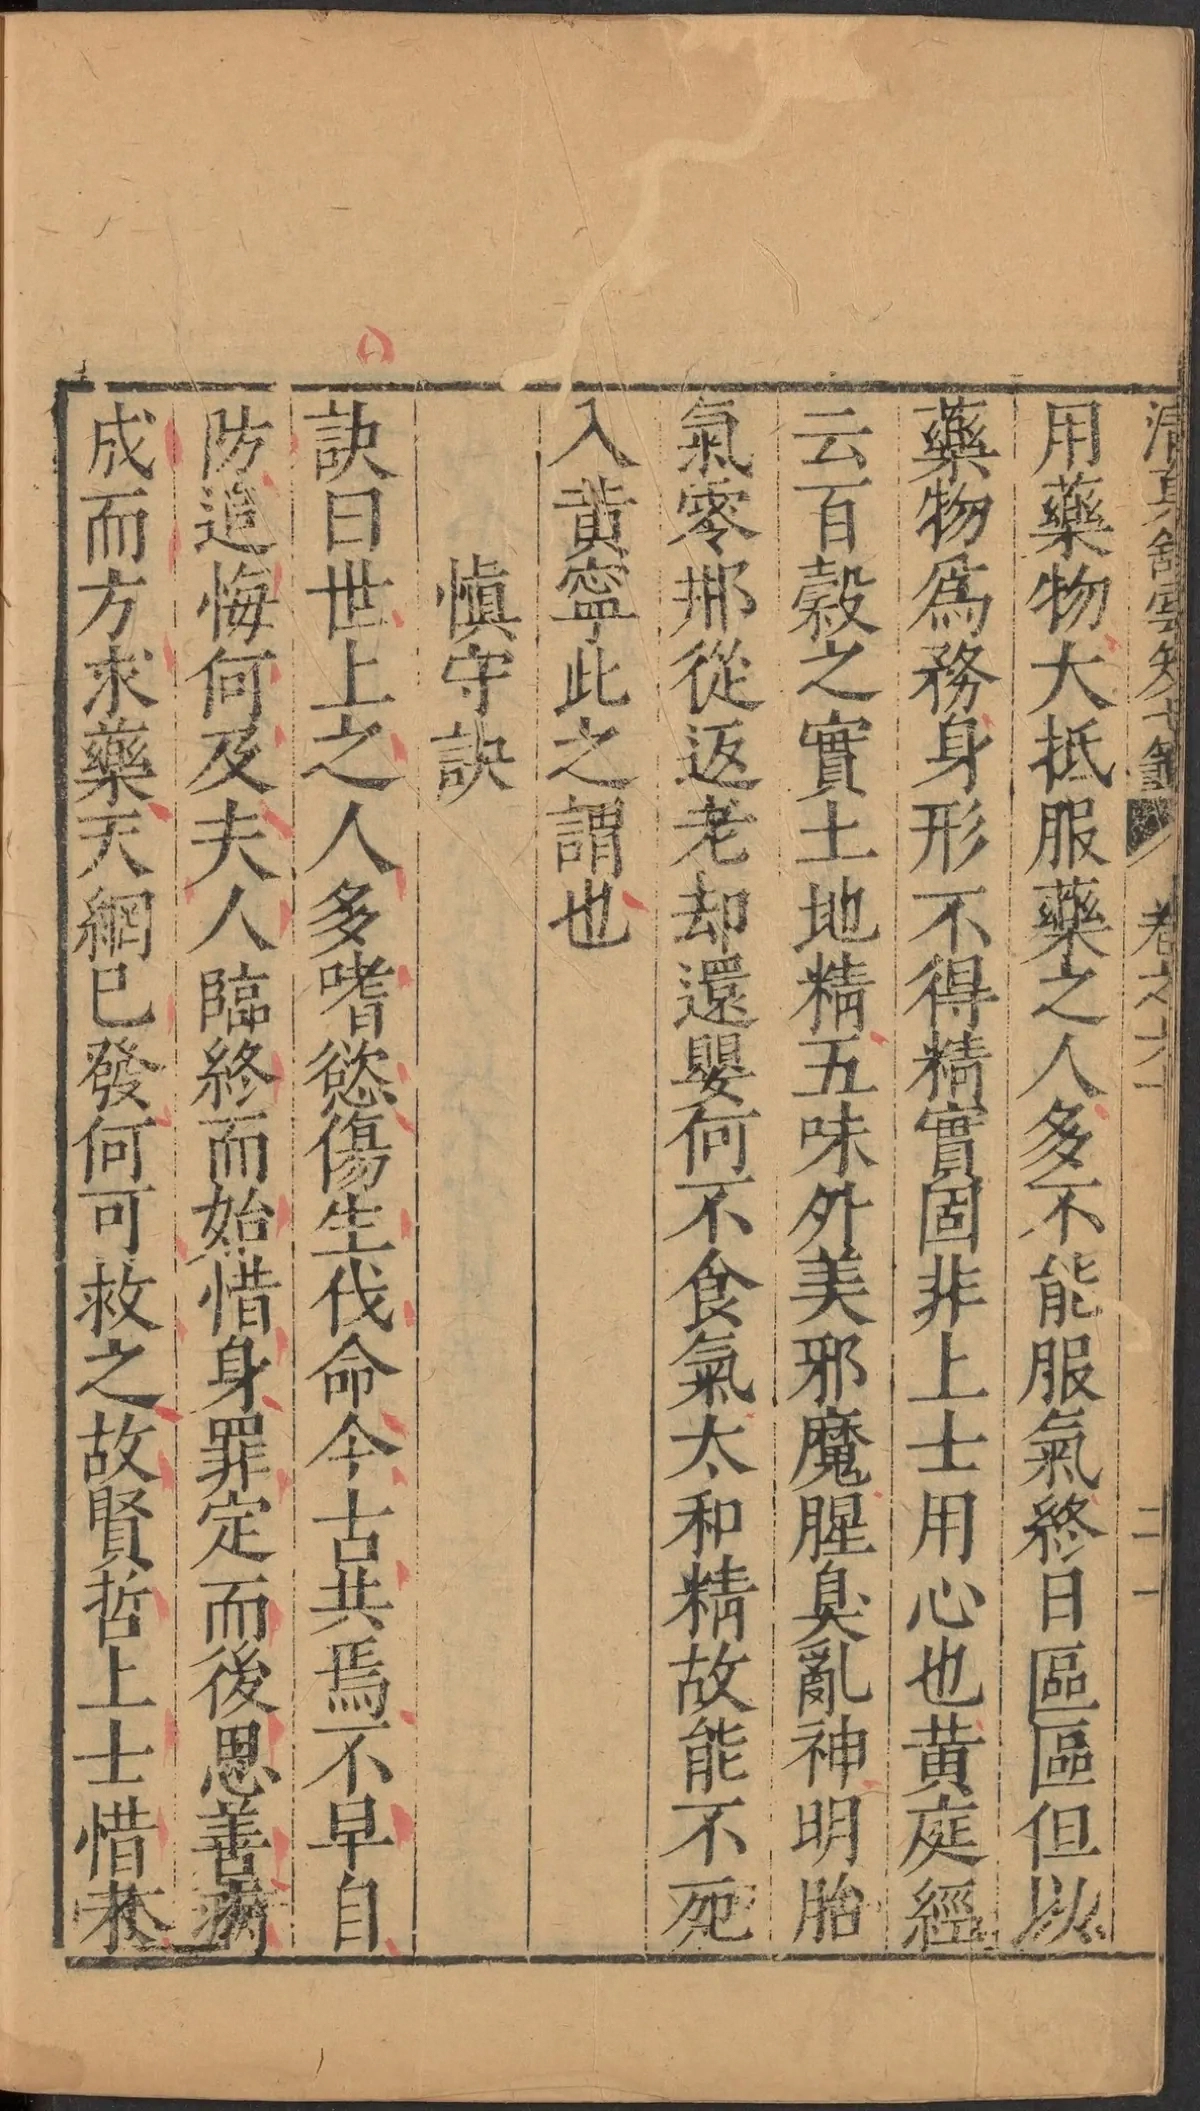 清真館雲笈七籤 卷之六十 二十一
用藥物大抵服藥之人多不能服氣終日區區但以
藥物爲務身形不得精實固非上士用心也黃庭經
云百穀之實土地精五味外美邪魔腥臭亂神明胎
氣零那從返老却還嬰何不食氣太和精故能不死
入黃寧此之謂也
慎守訣
訣曰世上之人多嗜慾傷生伐命今古共焉不早自
防追悔何及夫人臨終而始惜身罪定而後思善病
成而方求藥天網已發何可救之故賢哲上士惜未